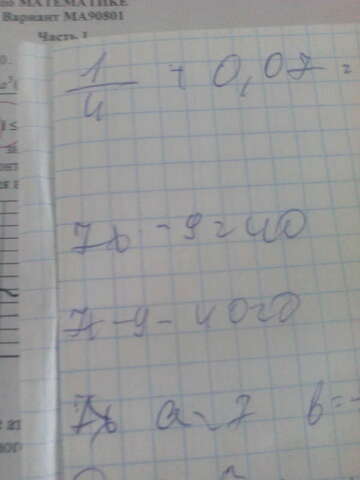 МАТЕМАТИКЕ
Вариант МА90801
Часть 1
1/4 + 0,07 =
7x - 9 = 40
7x - 9 - 40 = 0
7x a = 7 b = -